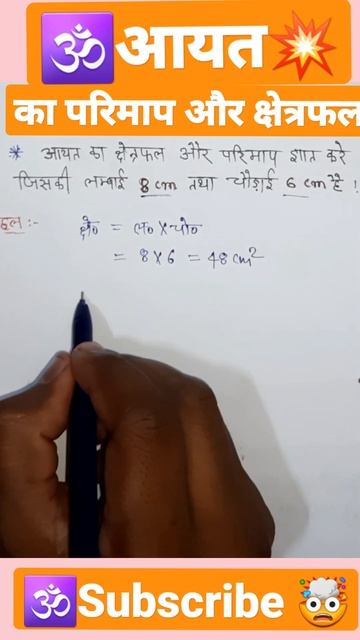 🕉️आयत💥
का परिमाप और क्षेत्रफल
* आयत का क्षेत्रफल और परिमाप ज्ञात करे
जिसकी लम्बाई 8 cm तथा चौड़ाई 6 cm है !
हल :- क्षे० = ल० × चौ०
= 8 × 6 = 48 cm²
🕉️Subscribe 🤯